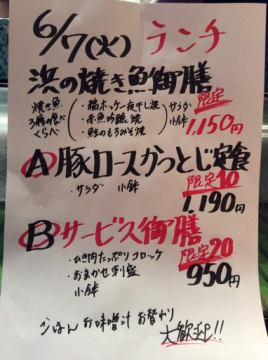 6/7(火) ランチ
浜の焼き魚御膳
焼き魚 3種の食べくらべ
・縞ホッケ一夜干し焼
・赤魚吟醸焼
・鮭のもろみそ焼
サラダ 小鉢
限定
1,150円
A 豚ロースかつとじ定食
・サラダ 小鉢
限定10
1,190円
B サービス御膳
・ひき肉たっぷりコロッケ
・おまかせ刺盛
小鉢
限定20
950円
ごはん お味噌汁 お替わり
大歓迎!!